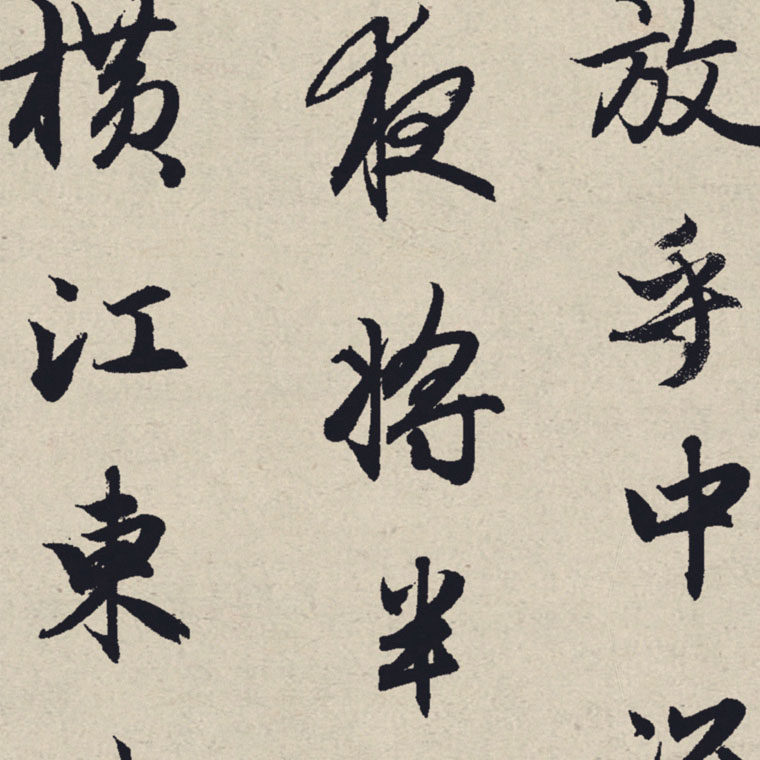 放乎中
夜將半
橫江東